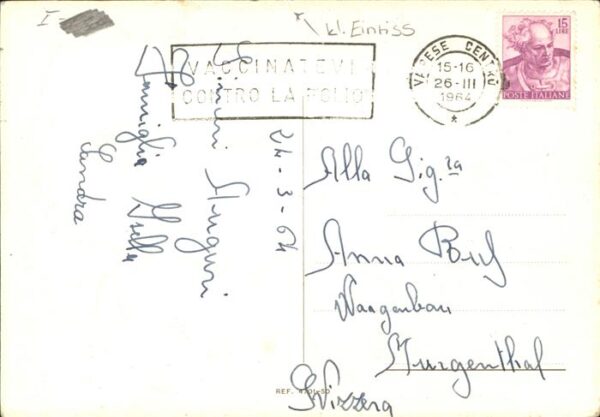 I
kl. Einriss
VACCINATEVI
CONTRO LA POLIO
VARESE CENTRO
15-16
26-III
1964
15
LIRE
POSTE ITALIANE
24-3-64
Auguri
Famiglia
Sandra
Alla Sig.ra
Anna
Waagenbau
Murgenthal
Svizzera
REF. 4701-SD